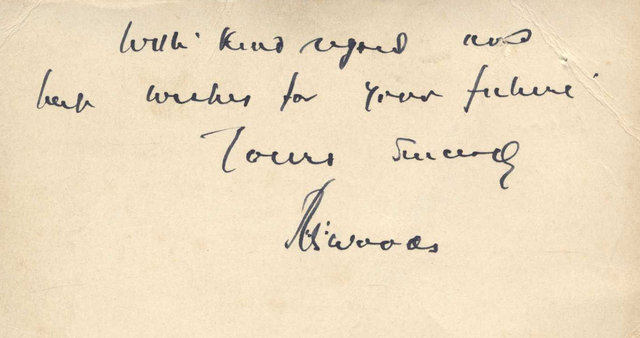 With kind regard and
best wishes for your future
Yours Sincerely